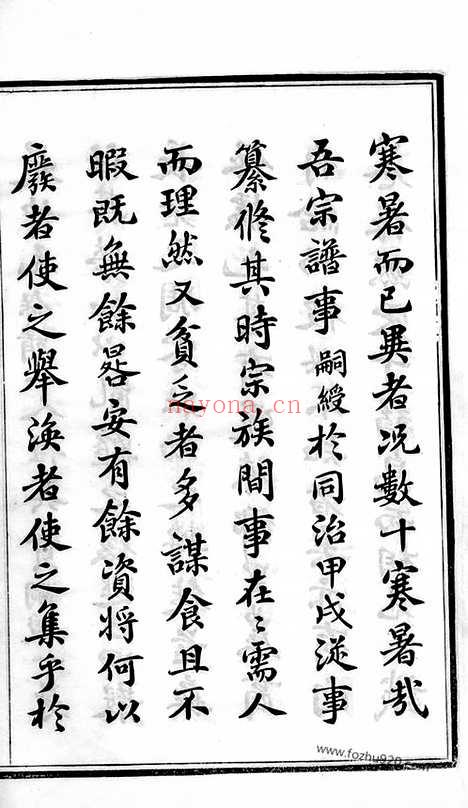 寒暑而已異者况數十寒暑哉
吾宗譜事嗣綬於同治甲戌從事
纂修其時宗族間事在〻需人
而理然又貧乏者多謀食且不
暇既無餘晷安有餘資將何以
廢者使之舉渙者使之集乎於
nayona.cn
www.fozhu920.com